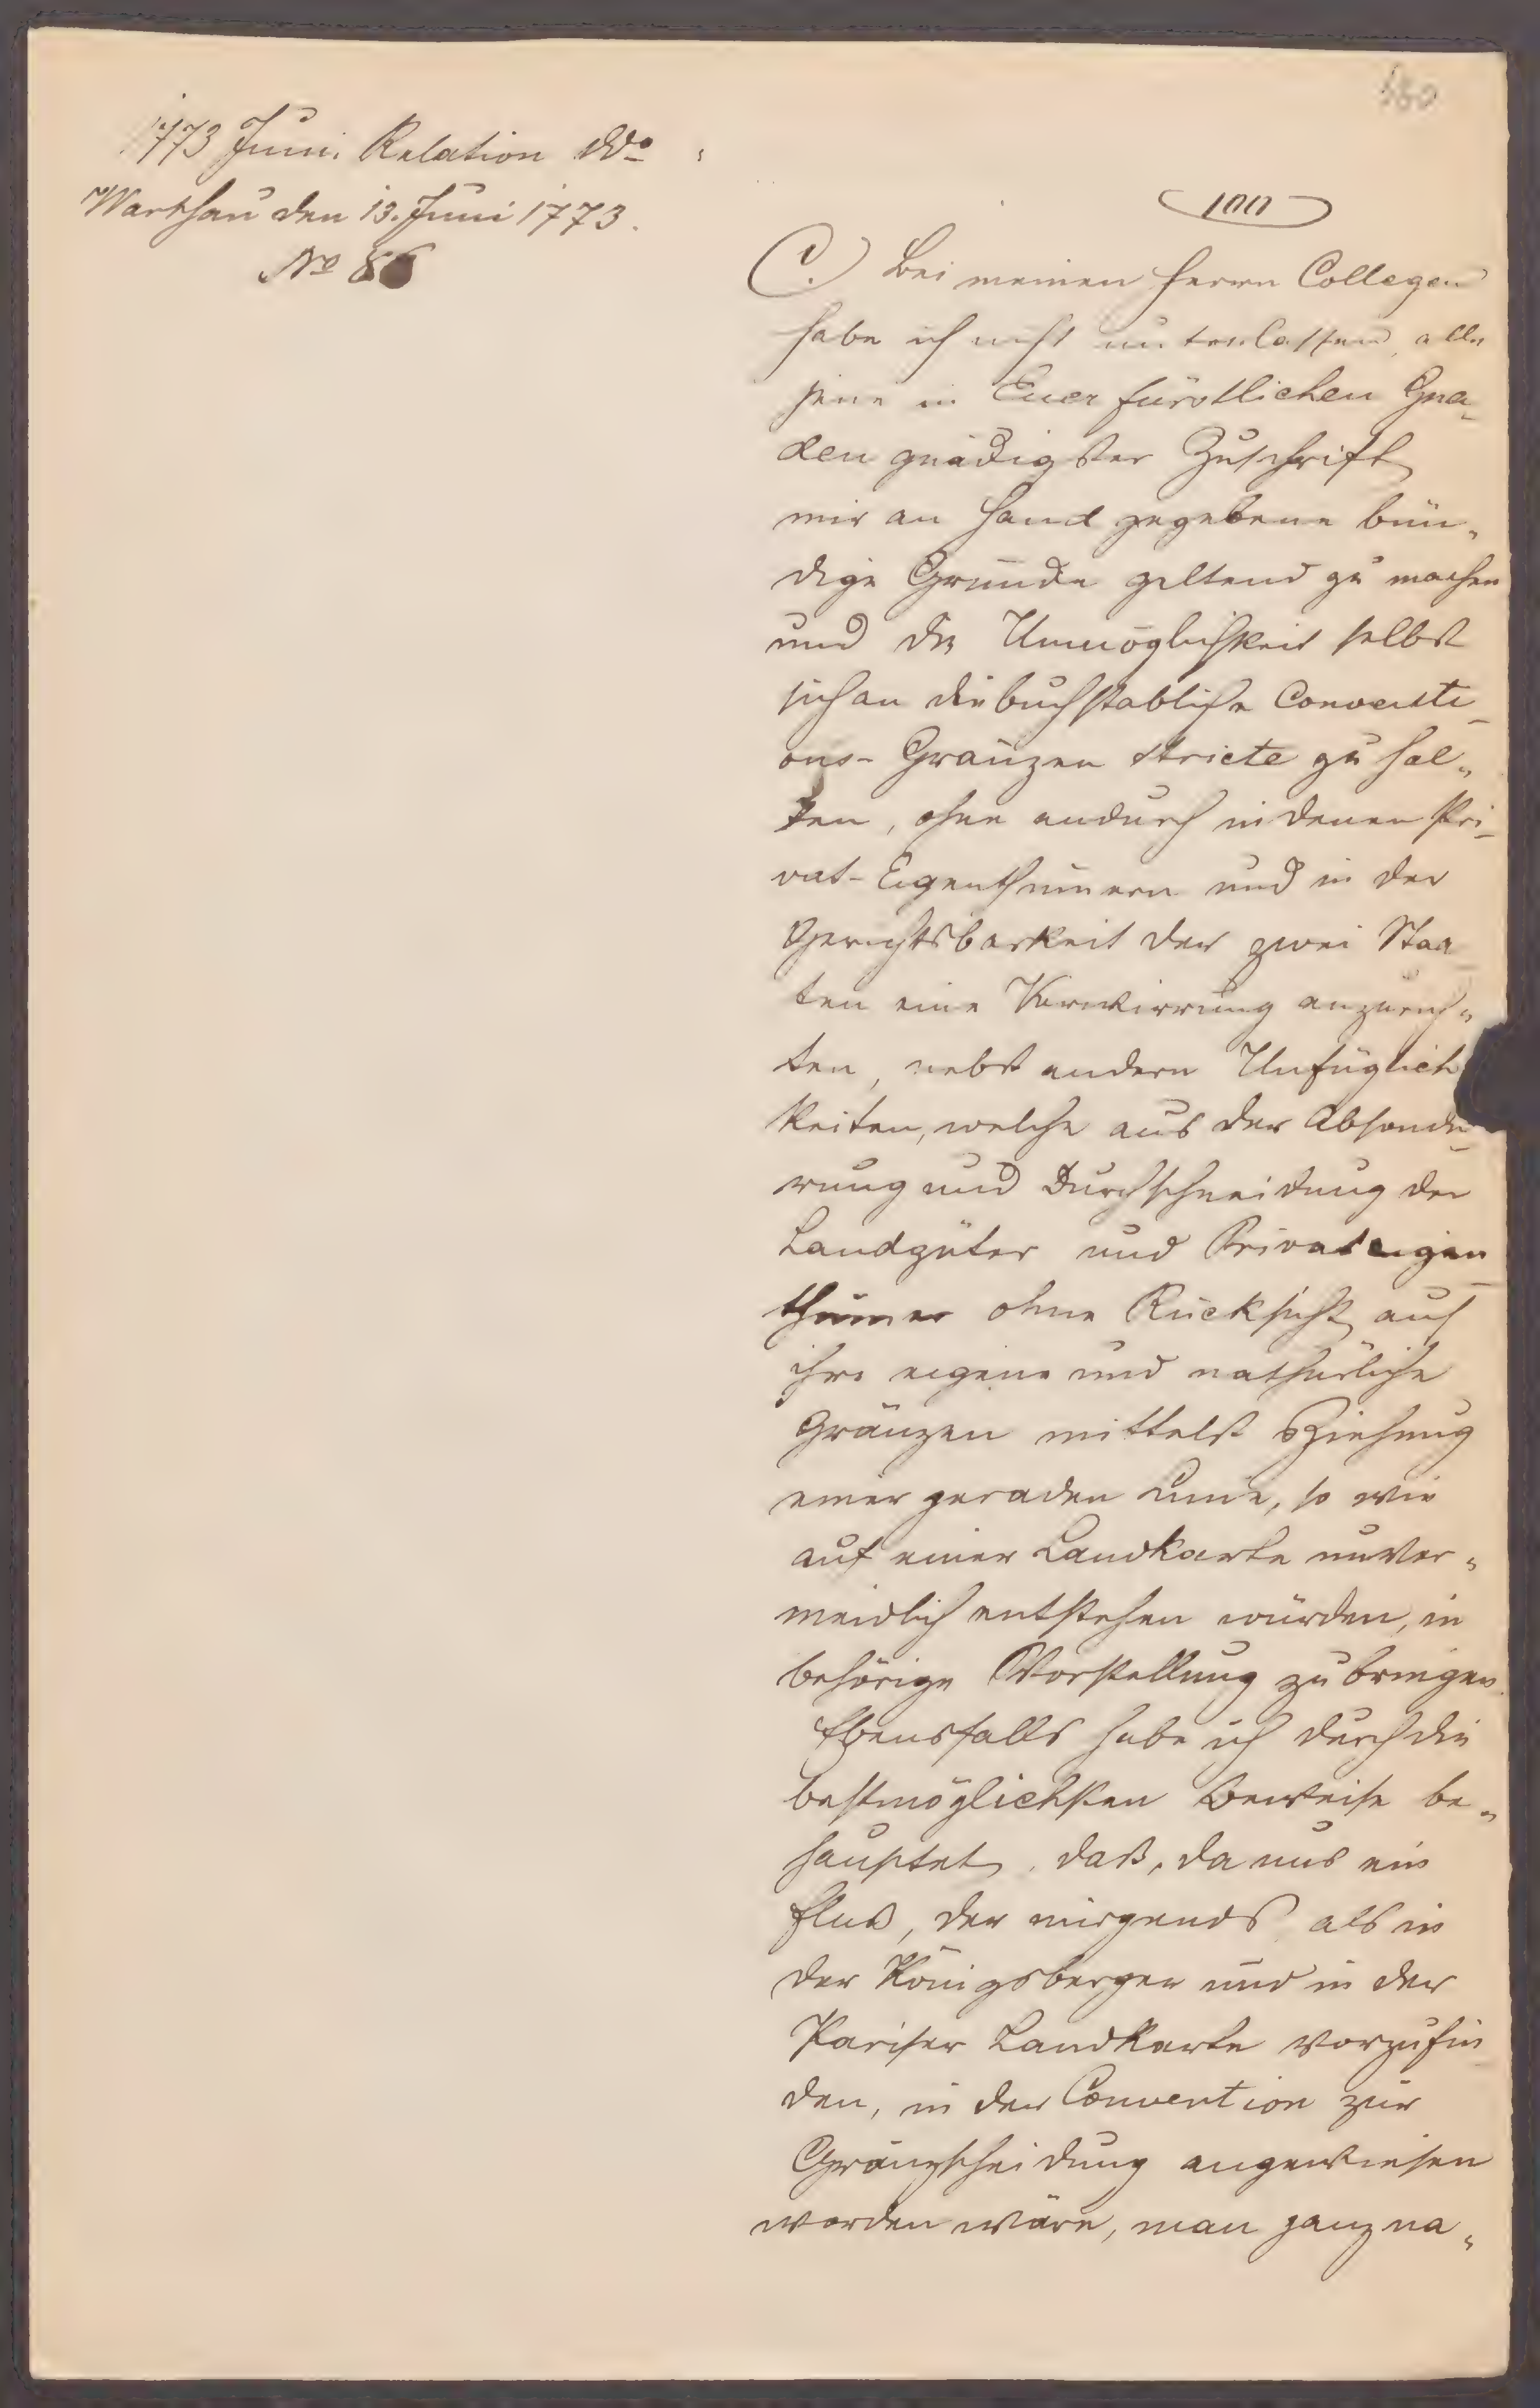 1773 Juni. Relation ddo
Warschau den 13. Juni 1773.
No 86
100
C.) Bei meinen Herrn Collegen
habe ich nicht unterlassen, alle
jene in Euer fürstlichen Gna-
den gnädigster Zuschrift
mir an Hand gegebene bün„
dige Gründe geltend zu machen
und die Unmöglichkeit selbst
sich an die buchstabliche Conventi-
ons-Gränzen stricte zu hal„
ten, ohne andurch in denen Pri-
vat-Eigenthümern und in der
Gerichtsbarkeit der zwei Staa-
ten eine Verwirrung anzurich„
ten, nebst andern Unfüglich
keiten, welche aus der Absonde-
rung und Durchschneidung der
Landgüter und Privateigen-
thümer ohne Rücksicht auf
ihre eigene und nathürliche
Gränzen mittelst Ziehung
einer geraden Linie, so wie
auf einer Landkarte unver„
meidlich entstehen würden, in
behörige Vorstellung zu bringen.
Ebensfalls habe ich durch die
bestmöglichsten Beweise be„
hauptet, daß, da uns ein
Fluß, der nirgends als in
der Königsberger und in der
Pariser Landkarte vorzufin-
den, in der Convention zur
Gränzscheidung angewiesen
worden wäre, man ganz na„